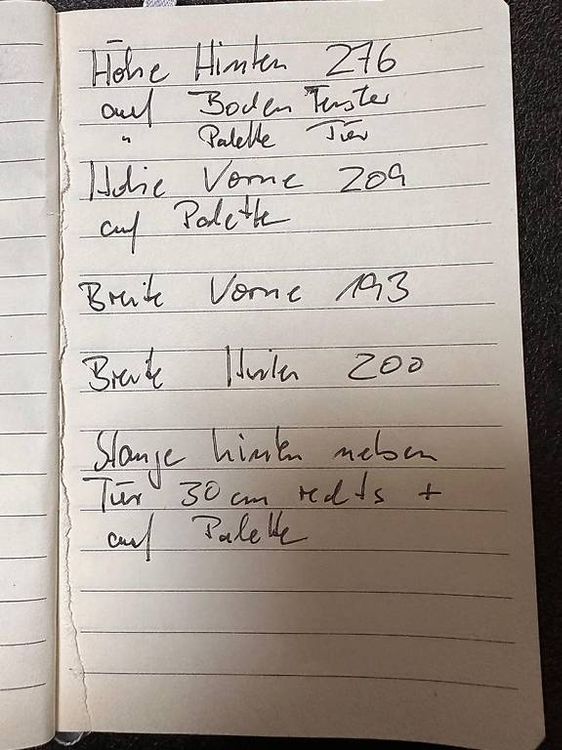 Höhe Hinten 276
auf Boden Fenster
" Palette Tür
Höhe Vorne 209
auf Palette
Breite Vorne 193
Breite Hinten 200
Stange hinten neben
Tür 30 cm rechts +
auf Palette